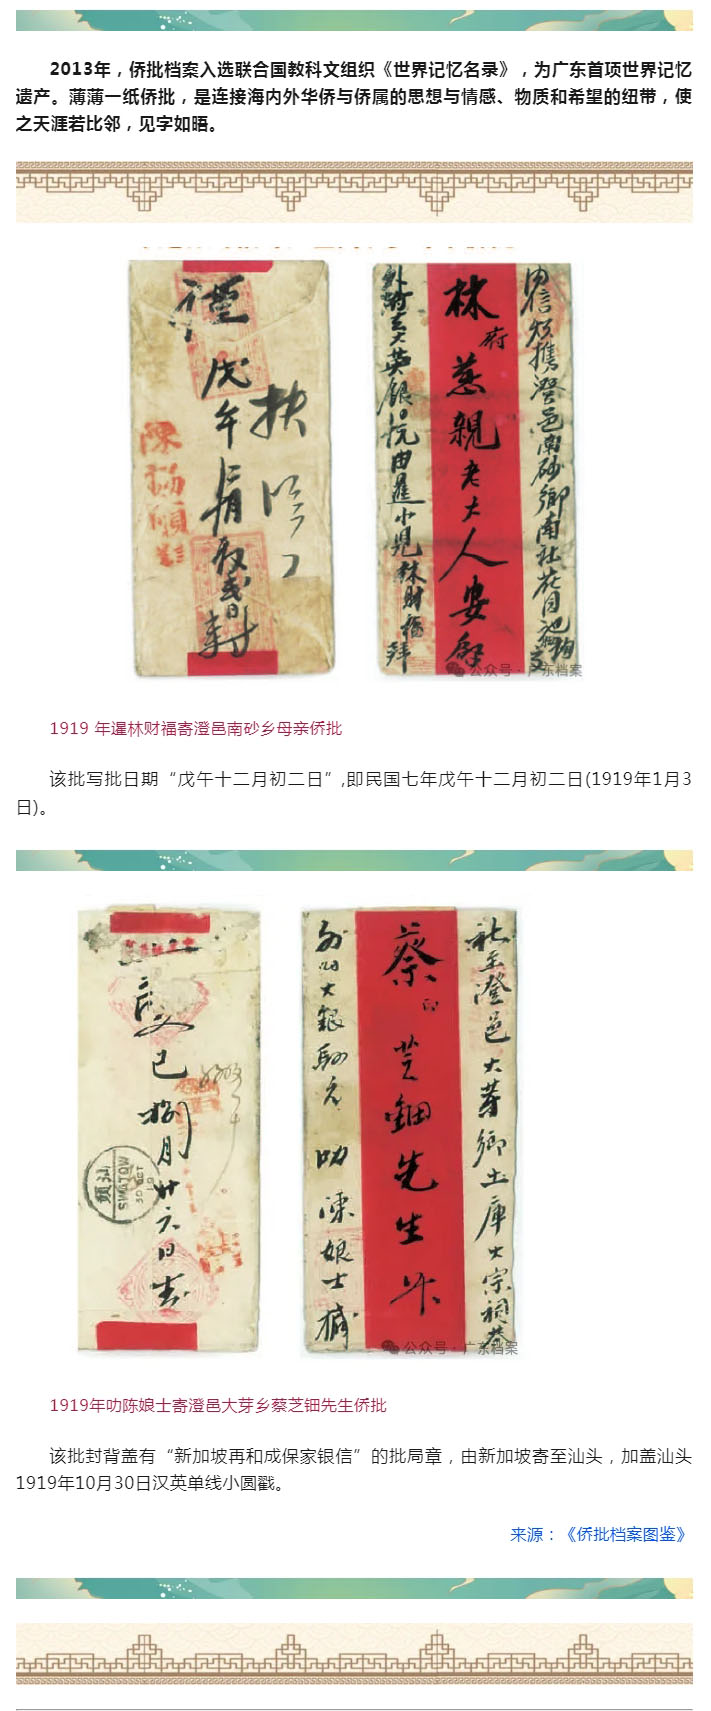 2013年，侨批档案入选联合国教科文组织《世界记忆名录》，为广东首项世界记忆
遗产。薄薄一纸侨批，是连接海内外华侨与侨属的思想与情感、物质和希望的纽带，使
之天涯若比邻，见字如晤。
戊午年
陳揚顧
封
内信煩攜澄邑南砂鄉南社花園池
林府慈親老大人安啟
英銀
由暹小兒林財福拜
公众号·广东档案
1919 年暹林财福寄澄邑南砂乡母亲侨批
该批写批日期“戊午十二月初二日”,即民国七年戊午十二月初二日(1919年1月3
日)。
己捌月廿六日
汕頭
SWATOW
30 OCT
19
社至澄邑大芽鄉土庫大宗祠
蔡印芝鈿先生升
外附大銀
叻陳娘士
公众号·广东档案
1919年叻陈娘士寄澄邑大芽乡蔡芝钿先生侨批
该批封背盖有“新加坡再和成保家银信”的批局章，由新加坡寄至汕头，加盖汕头
1919年10月30日汉英单线小圆戳。
来源：《侨批档案图鉴》